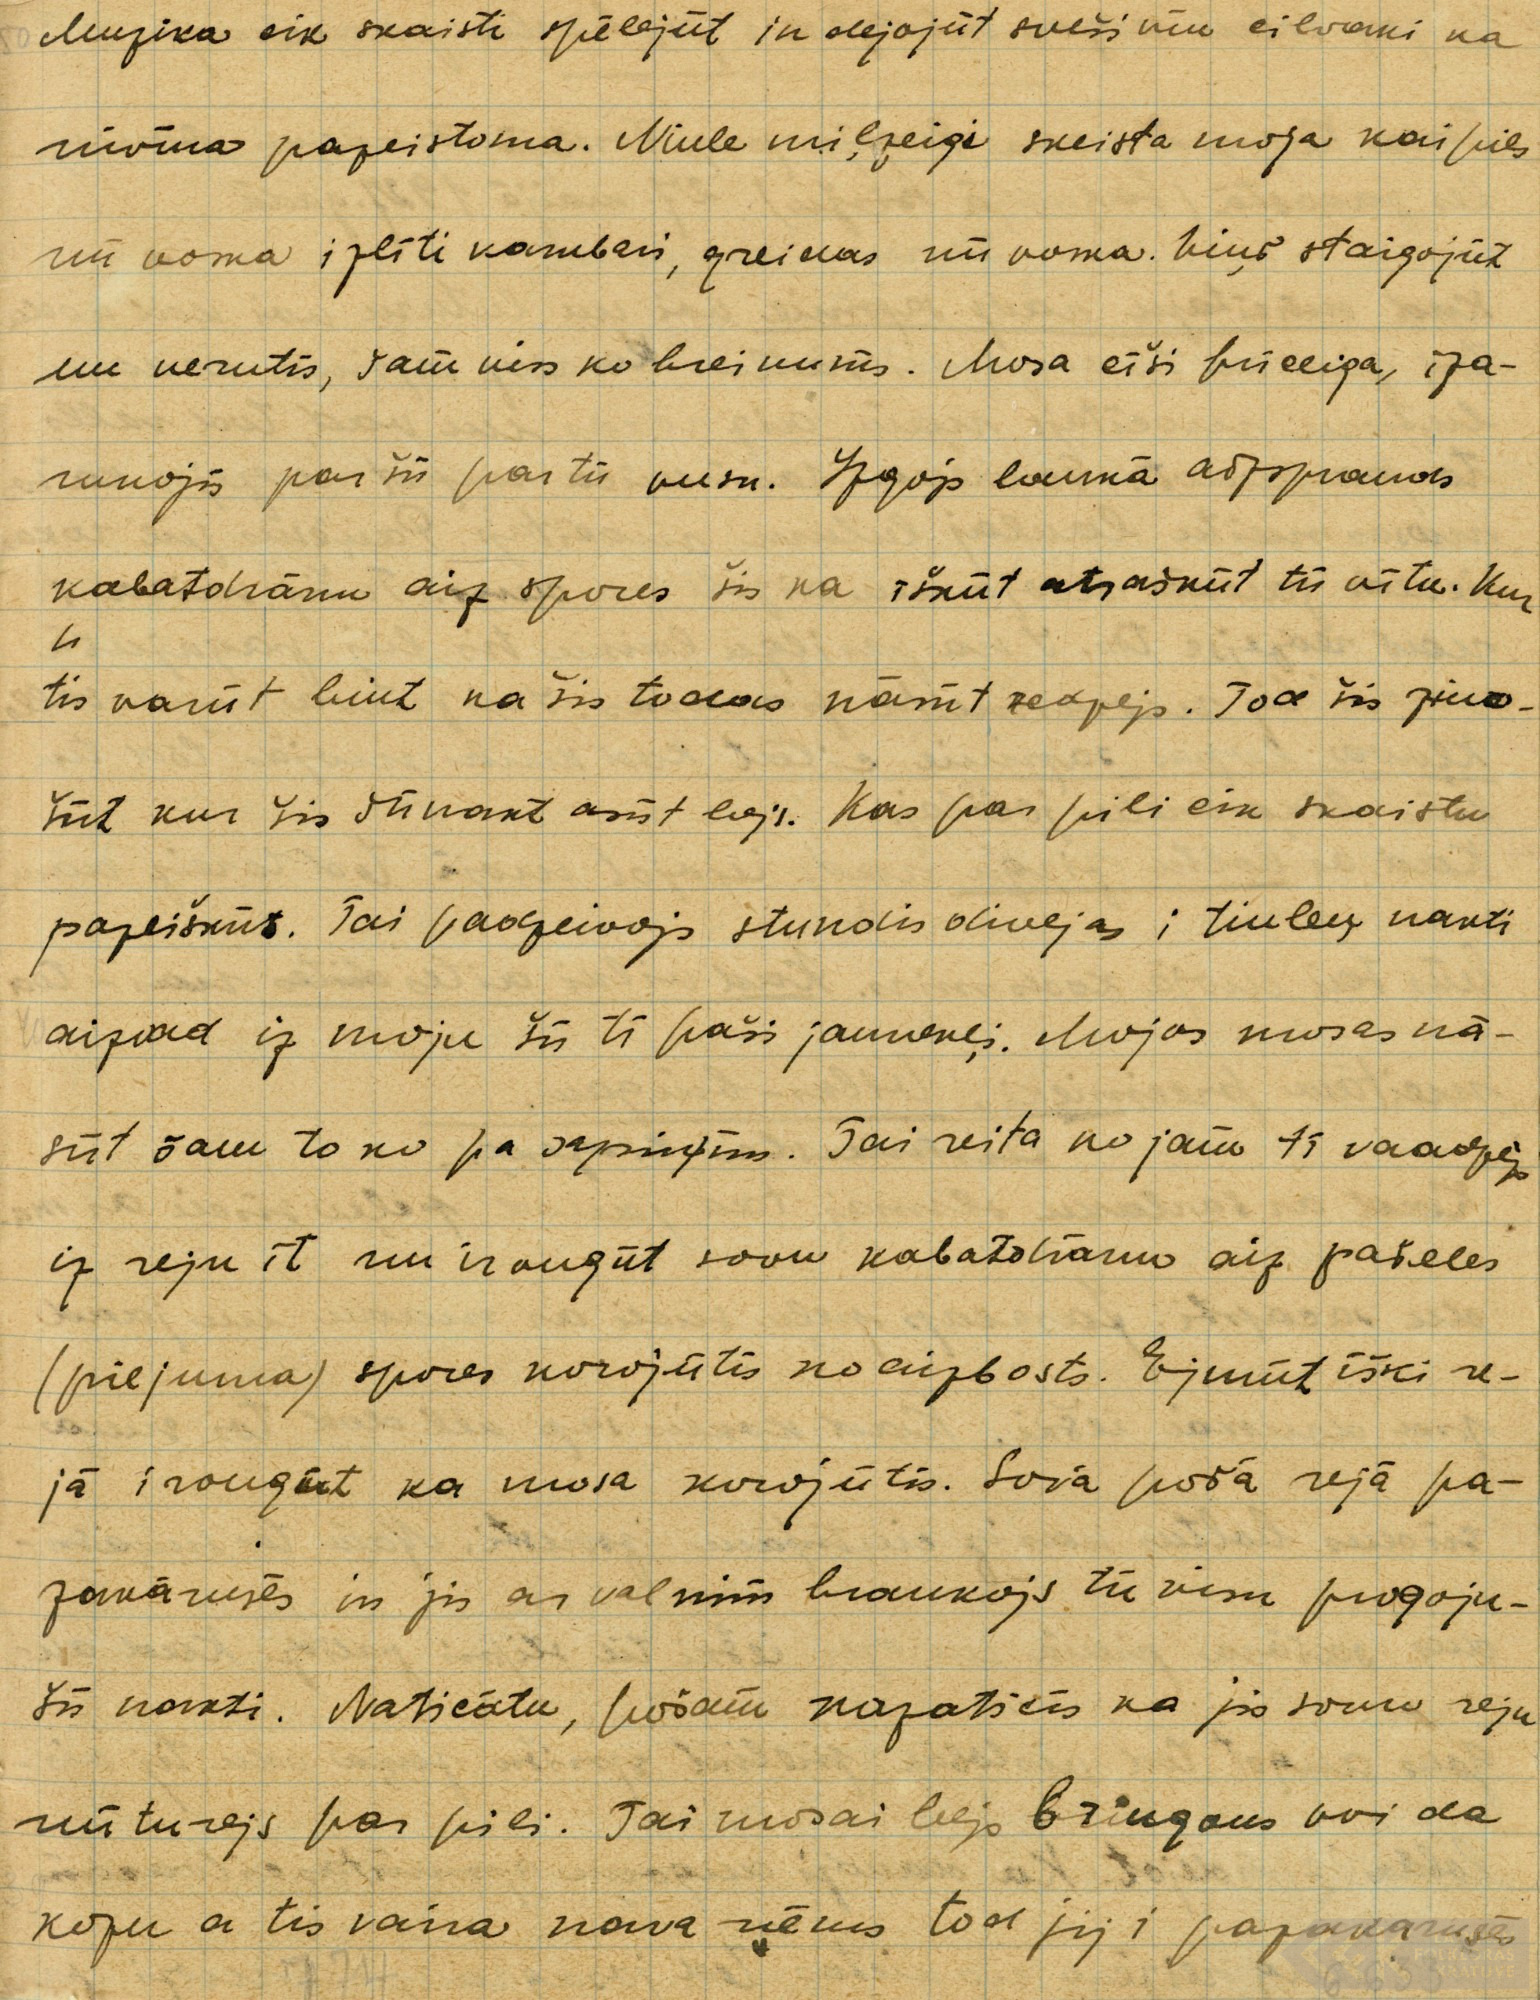 Muzika eik skaisti spēlejūt in dejojūt sveši nu eilvāki na
nivīna pazeistoma. Niule milzeigi skeista moja kai pils
nū voska izlīti kambari, greidas nū voska. Viņš staigojūt
un verūtīs, jam viss ko breinums. Mosa eiši prīceiga, iza-
runojīs par šū par tū vusu. Izgojs laukā aizsprauds
kabatdrānu aiz spores šis ka iškūt atraškūt tū vītu. Kur
tis varūt būt ka šis todas nāsūt redzejs. Tod šis zino-
šūt kur šis šūnakt asūt bejs. Kas par pili eik skaistu
pazeiškūt. Tai padzeivojs stundis divejas i tiuleņ nakti
aizvad iz moju šū tī paši jaunekļi. Mojos mosas nā-
sūt šam to ko pa sapniņim. Tai reita ko jam tī vaadzejs
iz reju īt nu iraugūt sovu kabatdrānu aiz pašeles
(pīlejuma) spores korojūtīs ko aizbosts. Ejmūt iški re-
jā iraugūt ka mosa korojūtīs. Sovā pošā rejā pa-
zakāruses in jis ar valnim braukojs tū visu progoju-
šū nakti. Naticātu, pošam nazaticīs ka jis sovu reju
nūturejs par pili. Tai mosai bejs bringaus voi da
kozu a tis vaira nava nēms tod jij i pazakaruses